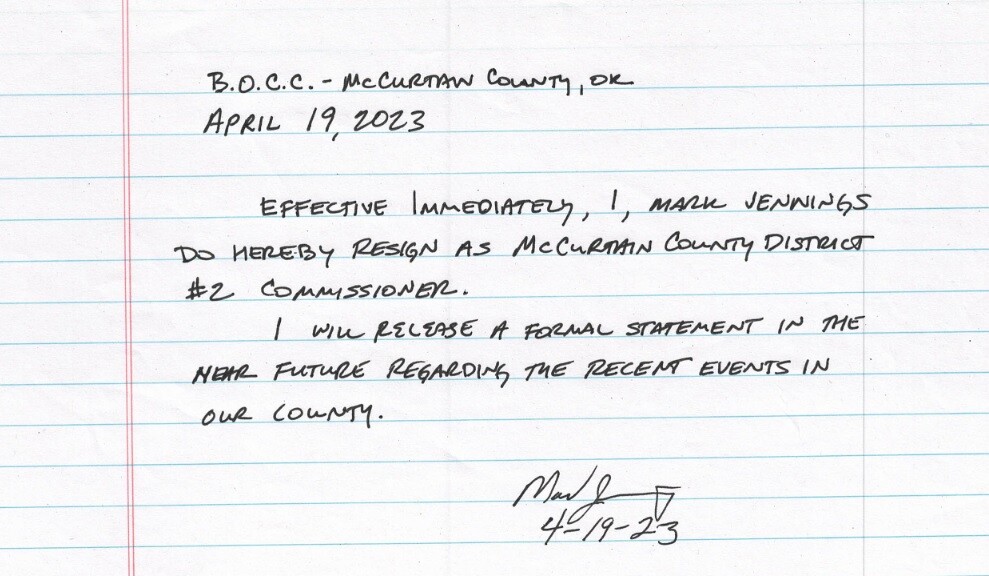 B.O.C.C. - McCURTAIN COUNTY, OK
APRIL 19, 2023
EFFECTIVE IMMEDIATELY, I, MARK JENNINGS
DO HEREBY RESIGN AS McCURTAIN COUNTY DISTRICT
#2 COMMISSIONER.
I WILL RELEASE A FORMAL STATEMENT IN THE
NEAR FUTURE REGARDING THE RECENT EVENTS IN
OUR COUNTY.
4-19-23